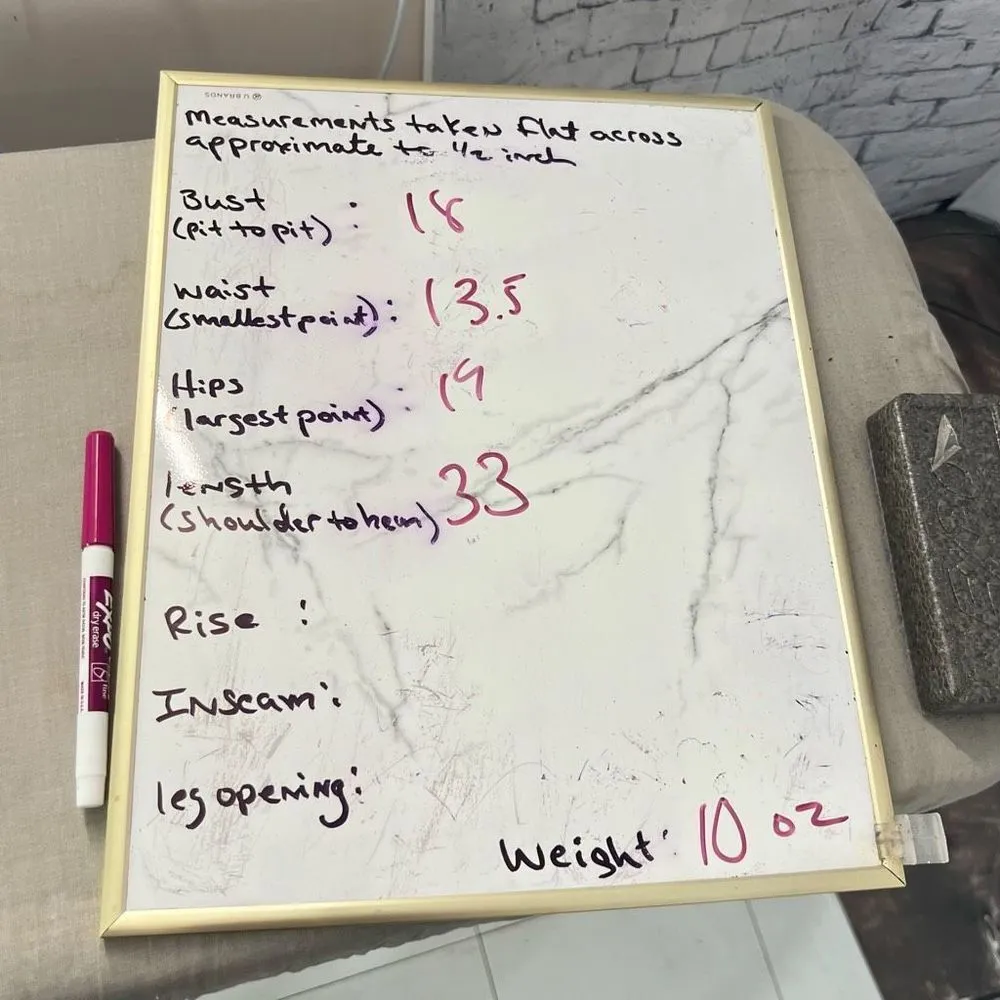 U BRANDS
Measurements taken flat across
approximate to 1/2 inch
Bust
(pit to pit) : 18
waist
(smallest point) : 13.5
Hips
(largest point) : 19
length
(shoulder to hem) 33
Rise :
Inseam :
leg opening :
Weight : 10 oz
EXPO
dry erase
fine